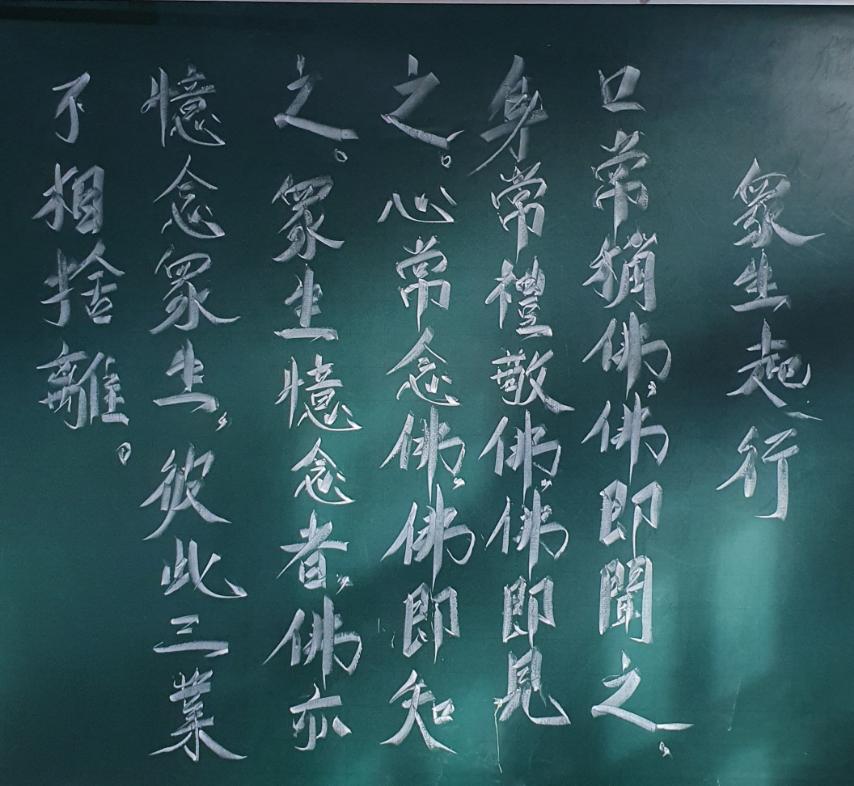 眾生起行
口常稱佛，佛即聞之，
身常禮敬佛，佛即見
之。心常念佛，佛即知
之。眾生憶念者，佛亦
憶念眾生，彼此三業
不相捨離。